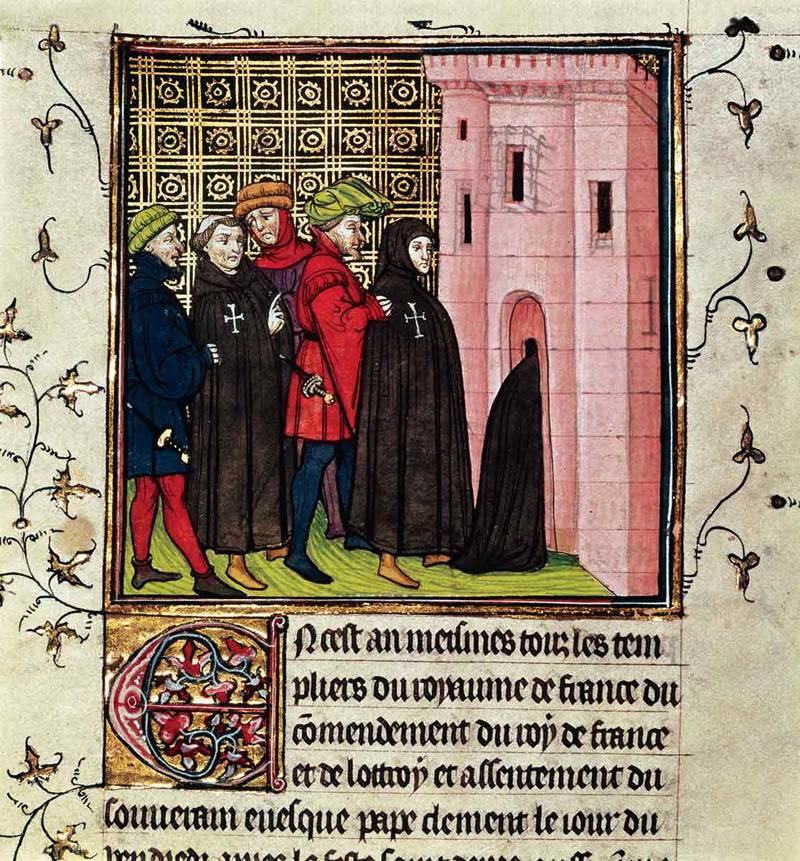 En cest an meismes touz les tem
pliers du royaume de france du
cõmendement du roy de france
et de lottroy et assentement du
souuerain euesque pape clement le iour du
vendredi apres la feste saint denis